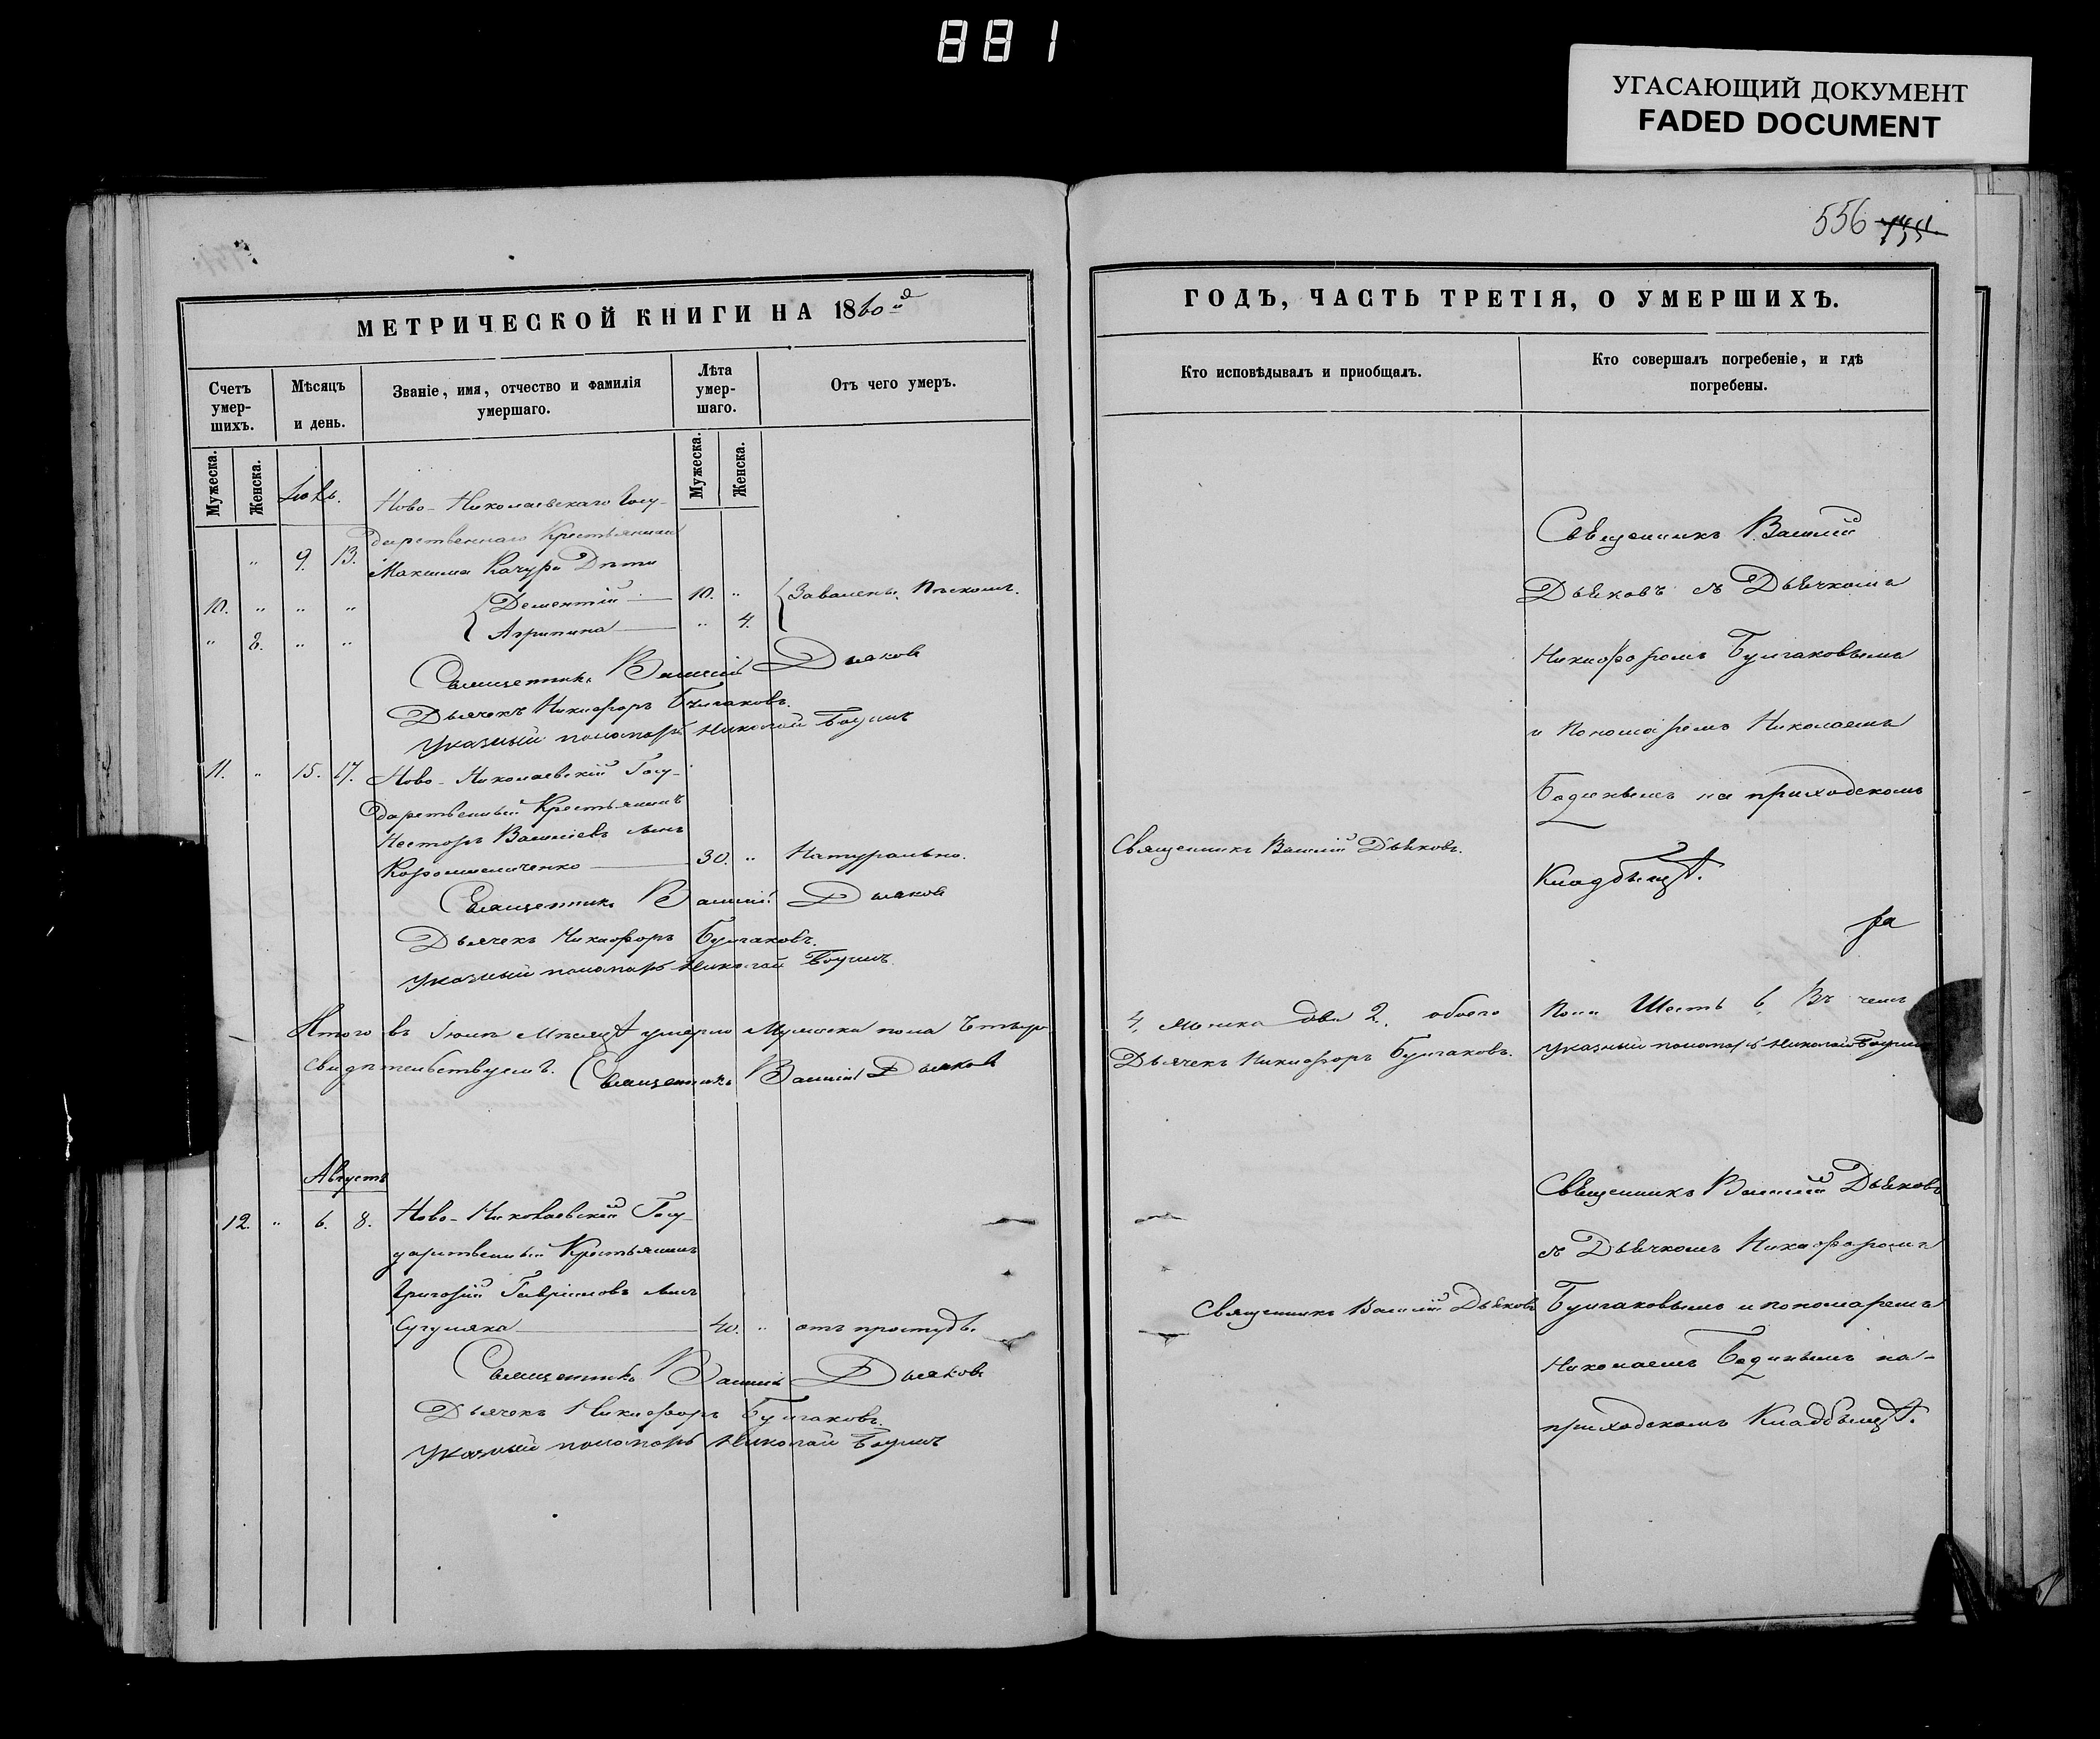 881
УГАСАЮЩИЙ ДОКУМЕНТ
FADED DOCUMENT
556 755
МЕТРИЧЕСКОЙ КНИГИ НА 1860й
Счетъ умер-шихъ.
Мѣсяцъ и день.
Званіе, имя, отчество и фамилія умершаго.
Лѣта умер-шаго.
Отъ чего умеръ.
Мужеска.
Женска.
Мужеска.
Женска.
Іюль.
Ново-Николаевскаго Госу-
" 9. 13. дарственнаго Крестьянина
Максима Качура Дѣти
10. " " " Дементій 10. " Завалены Пескомъ.
" 2. " " Агрипина " 4.
Священникъ Василій Дьяковъ
Дьячекъ Никифоръ Булгаковъ.
Указный пономарь Николай
11. " 15. 17. Ново-Николаевскій Госу-
дарственный Крестьянинъ
Несторъ Василіевъ сынъ
30. " Натурально.
Священникъ Василій Дьяковъ
Дьячекъ Никифоръ Булгаковъ.
Указный пономарь Николай
Итого въ Іюлѣ Мѣсяцѣ умерло Мужеска пола Четыре
свидѣтельствуемъ. Священникъ Василій Дьяковъ
Августъ
12. " 6. 8. Ново-Николаевскій Госу-
дарственный Крестьянинъ
Григорій Гавріиловъ сынъ
40. " отъ простуды.
Священникъ Василій Дьяковъ
Дьячекъ Никифоръ Булгаковъ.
Указный пономарь Николай
ГОДЪ, ЧАСТЬ ТРЕТІЯ, О УМЕРШИХЪ.
Кто исповѣдывалъ и пріобщалъ.
Кто совершалъ погребеніе, и гдѣ погребены.
Священникъ Василій
Дьяковъ съ Дьячкомъ
Никифоромъ Булгаковымъ
и Пономаремъ Николаемъ
на приходскомъ
Священникъ Василій Дьяковъ.
Кладбищѣ.
4, Женска два 2. обоего Пола Шесть 6, Въ чемъ
Дьячекъ Никифоръ Булгаковъ. Указный пономарь Николай
Священникъ Василій Дьяковъ
съ Дьячкомъ Никифоромъ
Священникъ Василій Дьяковъ Булгаковымъ и пономаремъ
Николаемъ на-
приходскомъ Кладбищѣ.